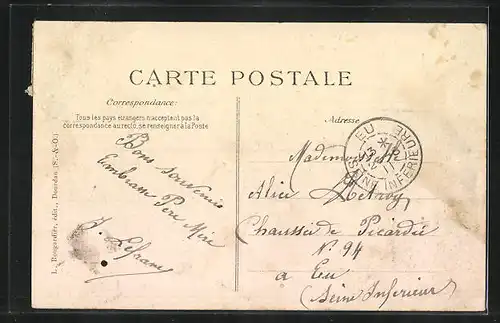 CARTE POSTALE
Correspondance:
Tous les pays étrangers n'acceptent pas la
correspondance au recto, se renseigner à la Poste
Adresse
Bons souvenirs
Embrasse Père Mère
J. Lefranc
EU
SEINE INFÉRIEURE
Mademoiselle
Alice
Chaussée de Picardie
N° 94
a Eu
(Seine Inferieur)
édit., Dourdan (S.-&-O.)